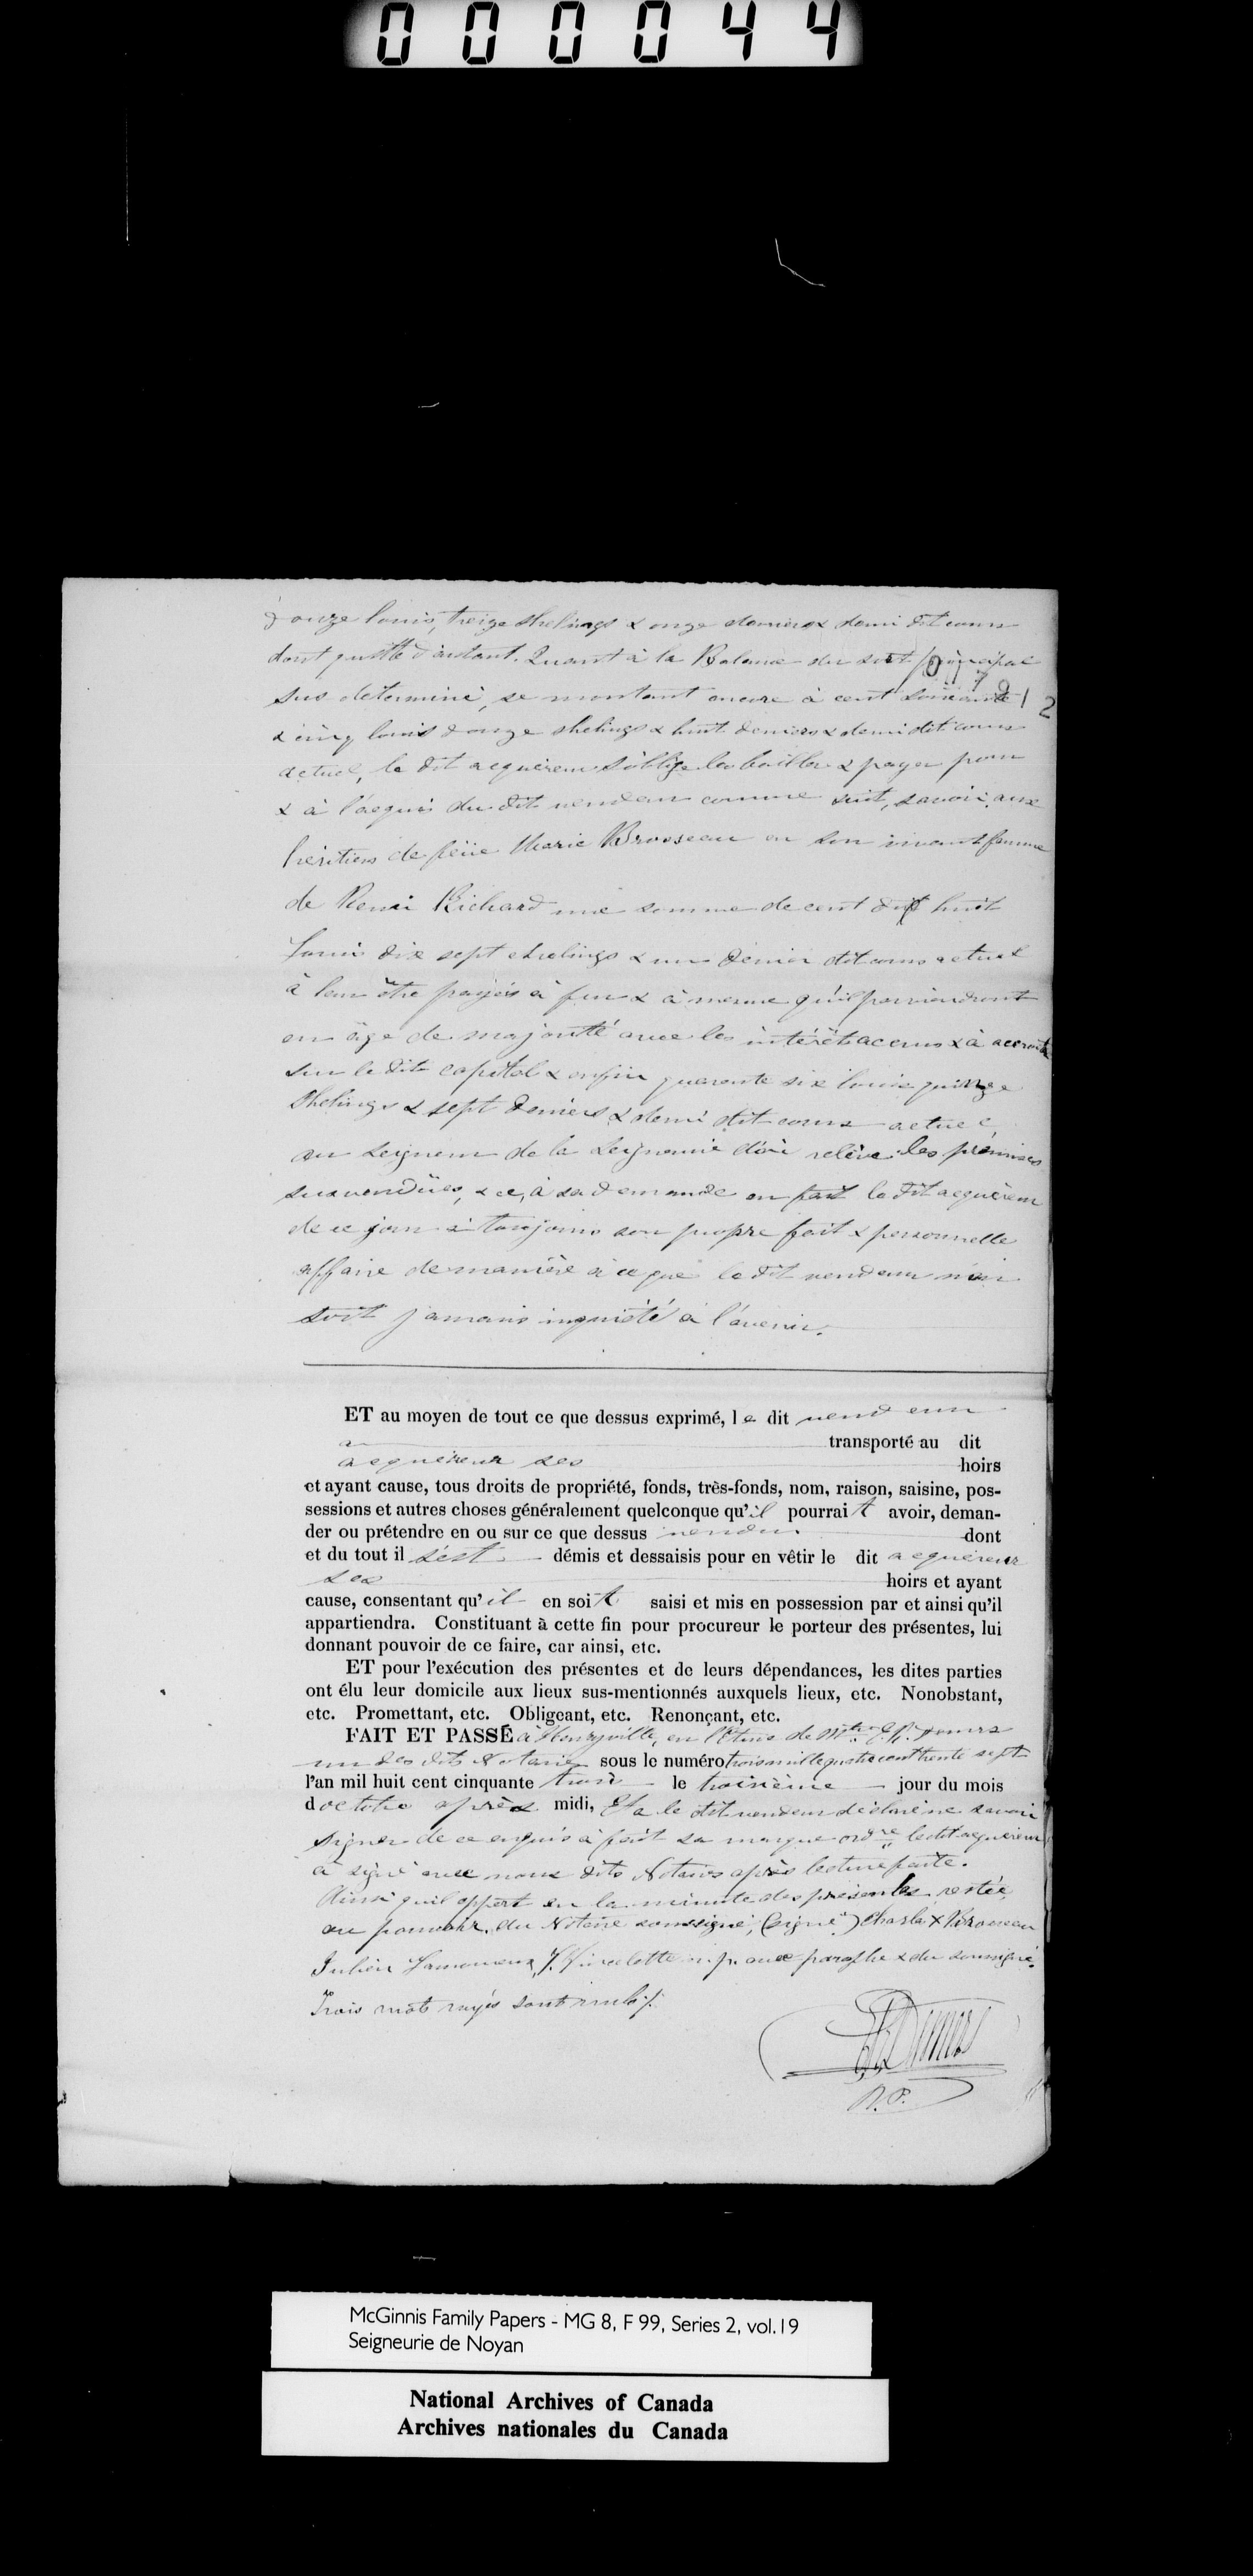 000044
d'onze louis, treize shelings & onze deniers & demi dit cours
dont quitte d'autant. Quant à la Balance du sort principal
sus determiné, se montant encore à cent soixante
012
& cinq louis donze shelings & huit deniers & demi dit cours
actuel, le dit acquéreur s'oblige les bailler & payer pour
& à l'acquis du dit vendeur comme suit, savoir, aux
héritiers de feüe Marie Brosseau en son vivant femme
de Remi Richard une somme de cent dix huit
louis dix sept shelings & un denier dit cours actuel
à leur être payés à fur & à mesure qu'il parviendront
en âge de majorité avec les intérêts accrus & à accroitre
sur le dit capital & enfin quarante six louis quinze
Shelings & sept deniers & demi dit cours actuel,
au Seigneur de la Seigneurie d'où relève les prémises
susvendües, & ce, à sa demande en fait le dit acquéreur
de ce jour à toujours son propre fait & personnelle
affaire de manière à ce que le dit vendeur n'en
soit jamais inquiété à l'avenir.
ET au moyen de tout ce que dessus exprimé, le dit vendeur
a transporté au dit
acquéreur ses hoirs
et ayant cause, tous droits de propriété, fonds, très-fonds, nom, raison, saisine, pos-
sessions et autres choses généralement quelconque qu'il pourrait avoir, deman-
der ou prétendre en ou sur ce que dessus vendu. dont
et du tout il s'est démis et dessaisis pour en vêtir le dit acquéreur
ses hoirs et ayant
cause, consentant qu'il en soit saisi et mis en possession par et ainsi qu'il
appartiendra. Constituant à cette fin pour procureur le porteur des présentes, lui
donnant pouvoir de ce faire, car ainsi, etc.
ET pour l'exécution des présentes et de leurs dépendances, les dites parties
ont élu leur domicile aux lieux sus-mentionnés auxquels lieux, etc. Nonobstant,
etc. Promettant, etc. Obligeant, etc. Renonçant, etc.
FAIT ET PASSÉ à Henryville, en l'Etude de Mtre E. R. Demers
un des dits Notaires sous le numéro trois mille quatre cent trente sept
l'an mil huit cent cinquante trois le troisième jour du mois
d'octobre après midi, Et a le dit vendeur déclaré ne savoir
signer de ce enquis à fait sa marque ordre le dit acquéreur
à signé avec nous dits Notaires après lecture faite.
Ainsi quil appert en la minute des présentes restée
au pouvoir du Notaire soussigné, (signé) Charles X Brosseau
Julien Lamoureux, n.p. avec paraphe & du soussigné.
Trois mots rayés sont nuls
E. R. Demers
N. P.
McGinnis Family Papers - MG 8, F 99, Series 2, vol.19
Seigneurie de Noyan
National Archives of Canada
Archives nationales du Canada